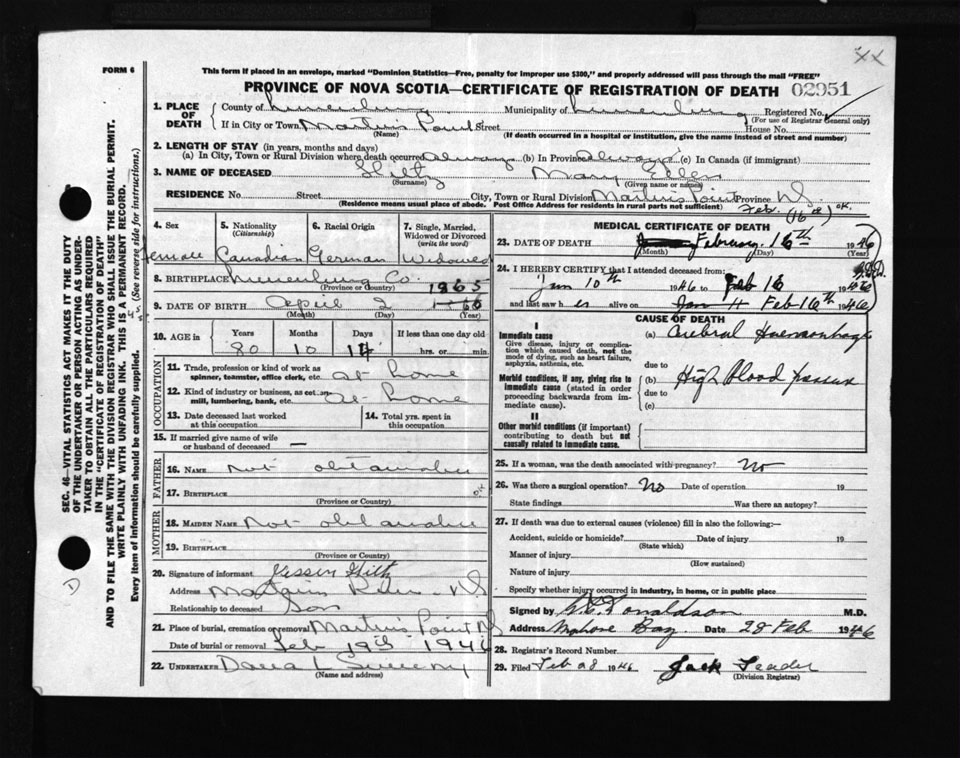 XX
FORM 6
This form if placed in an envelope, marked "Dominion Statistics—Free, penalty for improper use $300," and properly addressed will pass through the mail "FREE"
PROVINCE OF NOVA SCOTIA—CERTIFICATE OF REGISTRATION OF DEATH 02951
1. PLACE OF DEATH County of Lunenburg Municipality of Lunenburg Registered No.
(For use of Registrar General only)
If in City or Town Martins Point Street House No.
(Name) (If death occurred in a hospital or institution, give the name instead of street and number)
2. LENGTH OF STAY (in years, months and days)
(a) In City, Town or Rural Division where death occurred always (b) In Province always (c) In Canada (if immigrant)
3. NAME OF DECEASED Hiltz Mary Ellen
(Surname) (Given name or names)
RESIDENCE No. Street City, Town or Rural Division Martins Point Province N.S.
(Residence means usual place of abode. Post Office Address for residents in rural parts not sufficient)
Feb. (16th) OK.
4. Sex 5. Nationality (Citizenship) 6. Racial Origin 7. Single, Married, Widowed or Divorced (write the word)
Female Canadian German Widowed
8. BIRTHPLACE Lunenburg Co.
(Province or Country)
1865
9. DATE OF BIRTH April 2
(Month) (Day) (Year)
10. AGE in Years Months Days If less than one day old
80 10 14 hrs. or min.
OCCUPATION
11. Trade, profession or kind of work as spinner, teamster, office clerk, etc. at home
12. Kind of industry or business, as cotton mill, lumbering, bank, etc. at home
13. Date deceased last worked at this occupation
14. Total yrs. spent in this occupation
15. If married give name of wife or husband of deceased —
FATHER
16. NAME not obtainable
17. BIRTHPLACE
(Province or Country)
MOTHER
18. MAIDEN NAME Not obtainable
19. BIRTHPLACE
(Province or Country)
20. Signature of informant Hiltz
Address Martins River N.S
Relationship to deceased Son
21. Place of burial, cremation or removal Martins Point NS
Date of burial or removal Feb 19th 1946
22. UNDERTAKER Dana L Sweeny
(Name and address)
MEDICAL CERTIFICATE OF DEATH
23. DATE OF DEATH February 16th 1946
(Month) (Day) (Year)
24. I HEREBY CERTIFY that I attended deceased from:
Jan 10th 1946 to Feb 16 1946
and last saw her alive on Feb 16th 1946
CAUSE OF DEATH
I
Immediate cause
Give disease, injury or complication which caused death, not the mode of dying, such as heart failure, asphyxia, asthenia, etc.
(a) Cerebral Haemorrhage
due to
Morbid conditions, if any, giving rise to immediate cause (stated in order proceeding backwards from immediate cause).
(b) High Blood
due to
(c)
II
Other morbid conditions (if important) contributing to death but not causally related to immediate cause.
25. If a woman, was the death associated with pregnancy? No
26. Was there a surgical operation? No Date of operation 19
State findings Was there an autopsy?
27. If death was due to external causes (violence) fill in also the following:—
Accident, suicide or homicide? Date of injury 19
(State which)
Manner of injury
(How sustained)
Nature of injury
Specify whether injury occurred in industry, in home, or in public place
Signed by Donaldson M.D.
Address Mahone Bay Date 28 Feb 1946
28. Registrar's Record Number
29. Filed Feb 28 1946 Jack Leader
(Division Registrar)
SEC. 46—VITAL STATISTICS ACT MAKES IT THE DUTY
OF THE UNDERTAKER OR PERSON ACTING AS UNDER-
TAKER TO OBTAIN ALL THE PARTICULARS REQUIRED
IN THE "CERTIFICATE OF REGISTRATION OF DEATH"
AND TO FILE THE SAME WITH THE DIVISION REGISTRAR WHO SHALL ISSUE THE BURIAL PERMIT.
WRITE PLAINLY WITH UNFADING INK. THIS IS A PERMANENT RECORD.
Every item of information should be carefully supplied. (See reverse side for instructions.)
D